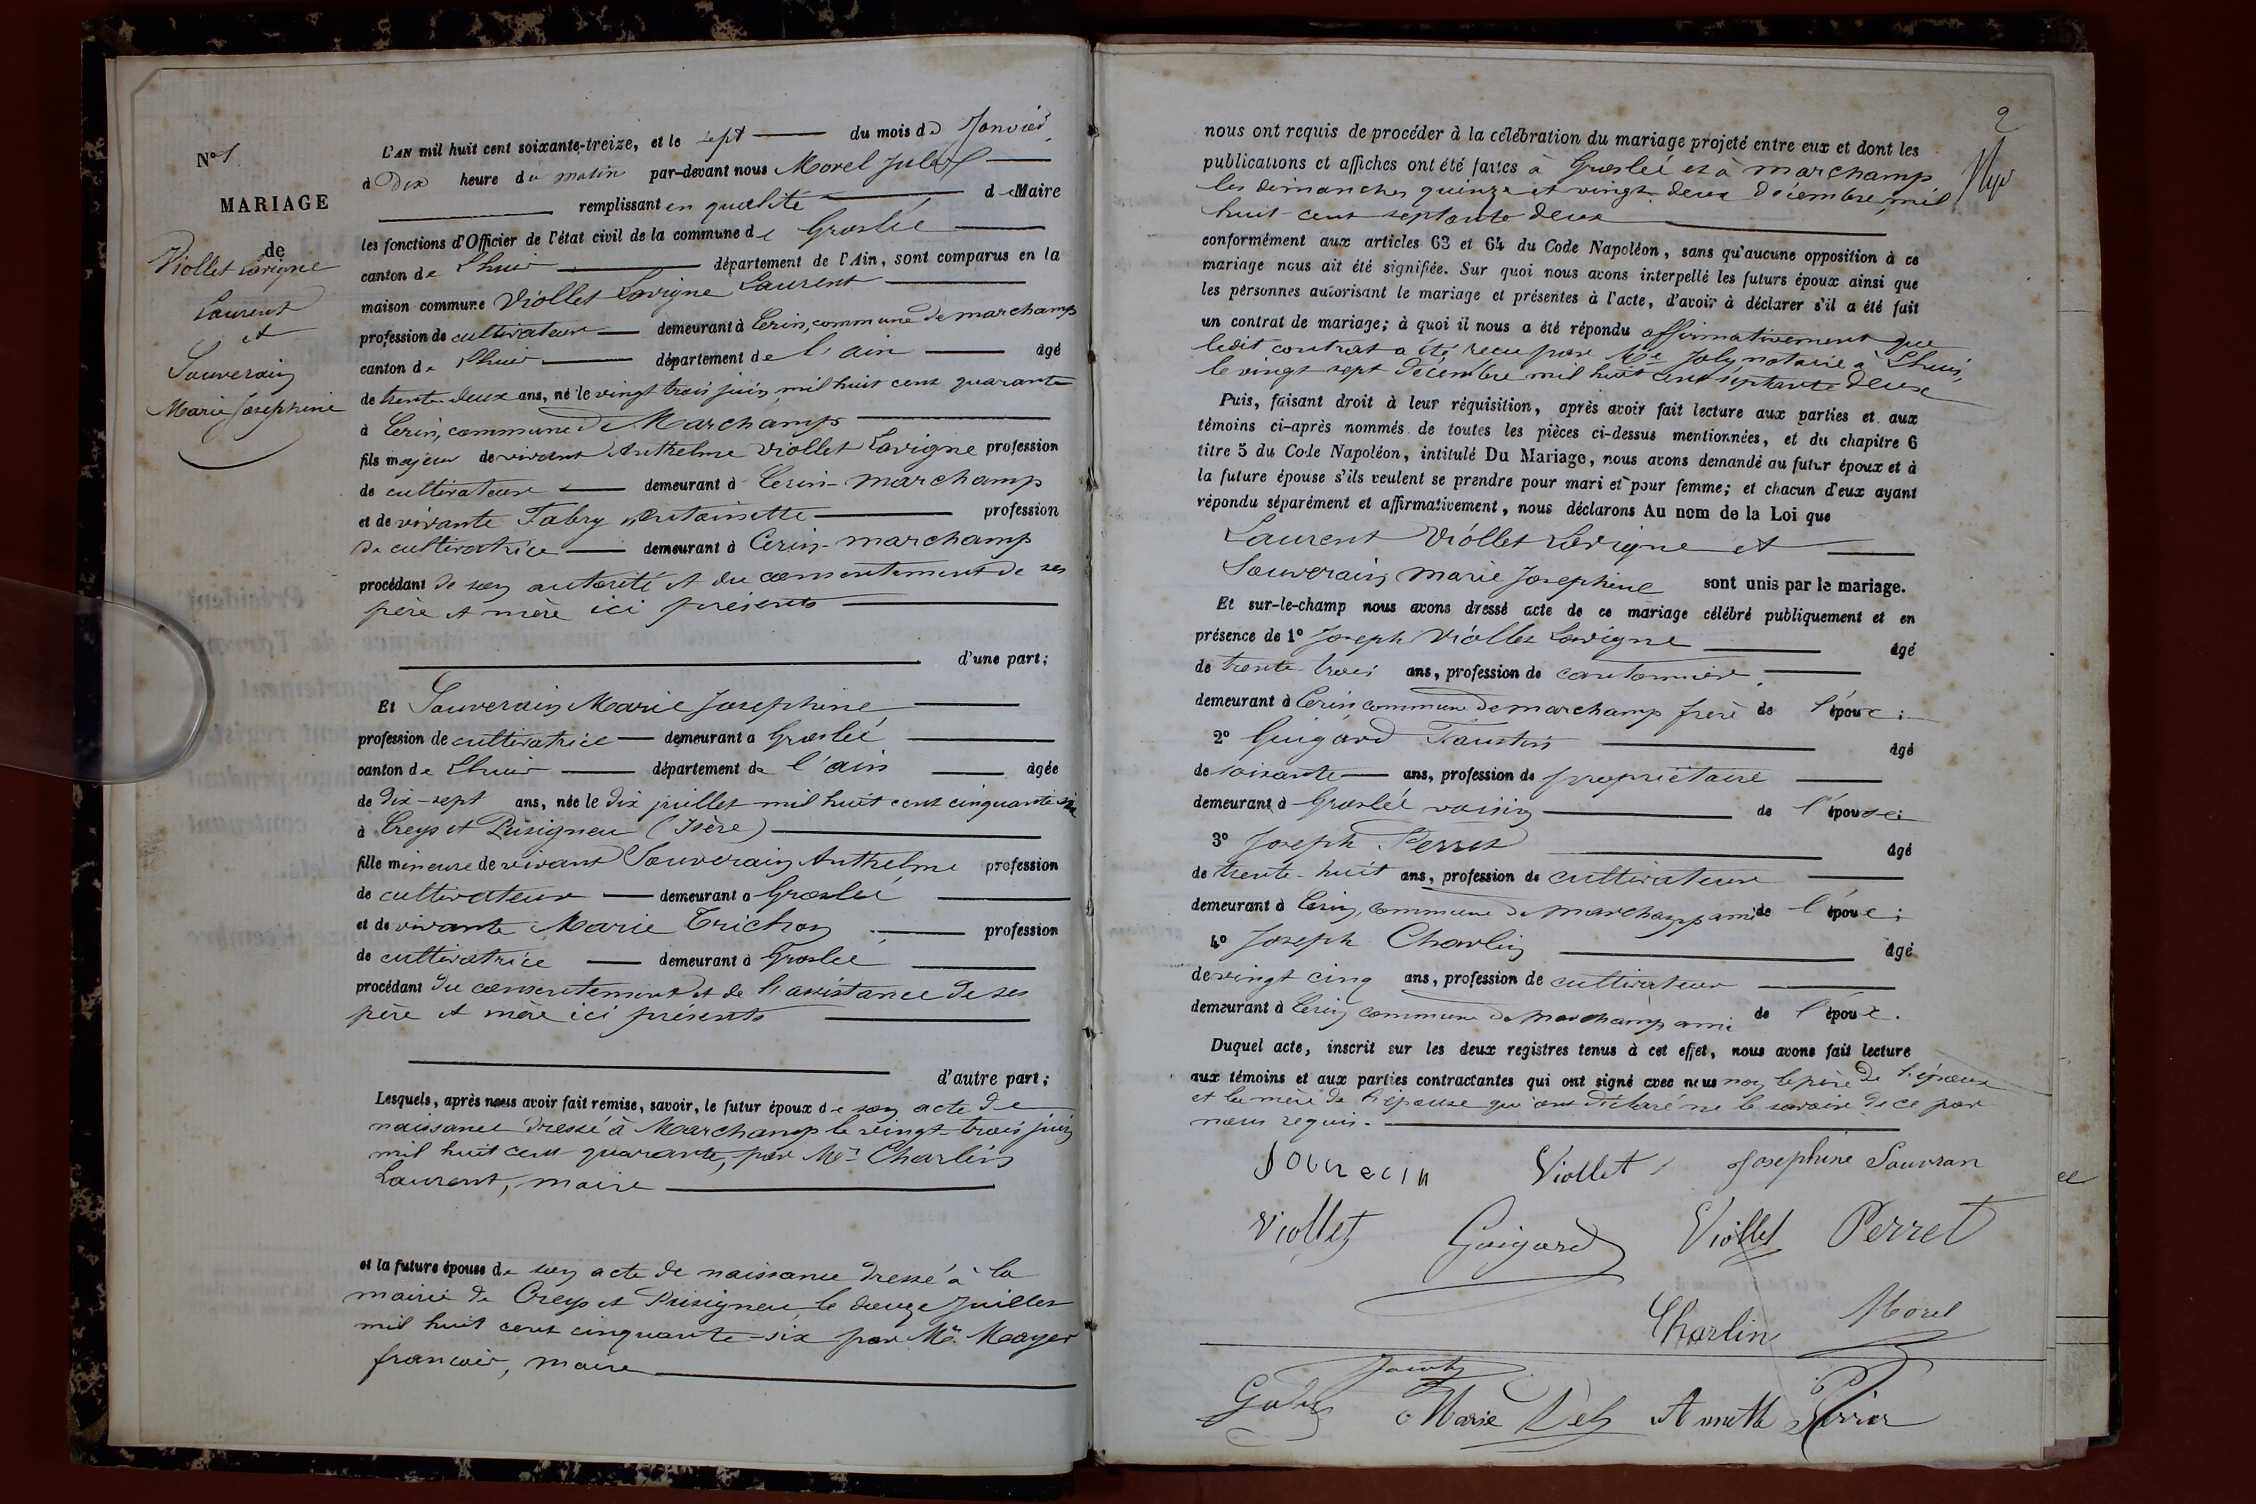 N° 1
MARIAGE
de
Viollet Lavigne
Laurent
et
Souverain
Marie Josephine
L'AN mil huit cent soixante-treize, et le sept du mois de Janvier
à Dix heure du matin par-devant nous Morel Jules
remplissant en qualité de Maire
les fonctions d'Officier de l'état civil de la commune de Groslée
canton de Lhuis département de l'Ain, sont comparus en la
maison commune Viollet Lavigne Laurent
profession de cultivateur demeurant à Cerin, commune de Marchamp
canton de Lhuis département de l'ain âgé
de trente deux ans, né le vingt trois juin mil huit cent quarante
à Cerin, commune de Marchamp
fils majeur de vivant Anthelme Viollet Lavigne profession
de cultivateur demeurant à Cerin-Marchamp
et de vivante Fabry Antoinette profession
de cultivatrice demeurant à Cerin-marchamp
procédant de son autorité et du consentement de ses
père et mère ici présents
d'une part;
Et Souverain Marie Josephine
profession de cultivatrice demeurant à Groslée
canton de Lhuis département de l'ain âgée
de dix-sept ans, née le dix juillet mil huit cent cinquante six
à Creys et Pusigneu (Isère)
fille mineure de vivant Souverain Anthelme profession
de cultivateur demeurant à Groslée
et de vivante Marie Trichon profession
de cultivatrice demeurant à Groslée
procédant du consentement et de l'assistance de ses
père et mère ici présents
d'autre part;
Lesquels, après nous avoir fait remise, savoir, le futur époux de son acte de
naissance dressé à Marchamp le vingt-trois juin
mil huit cent quarante, par Mr Charlin
Laurent, maire
et la future épouse de son acte de naissance dressé à la
mairie de Creys et Pusigneu, le douze Juillet
mil huit cent cinquante-six par Mr. Mayer
francois, maire
2
nous ont requis de procéder à la célébration du mariage projeté entre eux et dont les
publications et affiches ont été faites à Groslée et à Marchamp
les dimanches quinze et vingt-deux Décembre mil
huit cent septante deux
conformément aux articles 63 et 64 du Code Napoléon, sans qu'aucune opposition à ce
mariage nous ait été signifiée. Sur quoi nous avons interpellé les futurs époux ainsi que
les personnes autorisant le mariage et présentes à l'acte, d'avoir à déclarer s'il a été fait
un contrat de mariage; à quoi il nous a été répondu affirmativement que
ledit contrat a été reçu par Me Joly, notaire à Lhuis,
le vingt sept Décembre mil huit cent septante deux
Puis, faisant droit à leur réquisition, après avoir fait lecture aux parties et aux
témoins ci-après nommés de toutes les pièces ci-dessus mentionnées, et du chapitre 6
titre 5 du Code Napoléon, intitulé Du Mariage, nous avons demandé au futur époux et à
la future épouse s'ils veulent se prendre pour mari et pour femme; et chacun d'eux ayant
répondu séparément et affirmativement, nous déclarons Au nom de la Loi que
Laurent Viollet Lavigne et
Souverain Marie Josephine sont unis par le mariage.
Et sur-le-champ nous avons dressé acte de ce mariage célébré publiquement et en
présence de 1° Joseph Viollet Lavigne âgé
de trente-trois ans, profession de cantonnier
demeurant à Cerin commune de marchamp frère de l'époux;
2° Guigard Faustin âgé
de soixante ans, profession de propriétaire
demeurant à Groslée voisin de l'épouse;
3° Joseph Perret âgé
de trente-huit ans, profession de cultivateur
demeurant à Cerin, commune de Marchamp ami de l'époux;
4° Joseph Charlin âgé
de vingt cinq ans, profession de cultivateur
demeurant à Cerin commune de Marchamp ami de l'époux.
Duquel acte, inscrit sur les deux registres tenus à cet effet, nous avons fait lecture
aux témoins et aux parties contractantes qui ont signé avec nous non le père de l'époux
et la mère de l'épouse qui ont déclaré ne le savoir de ce par
nous requis.
Souverain Viollet Josephine Souvran
Viollet Guigard Viollet Perret
Charlin Morel
Marie